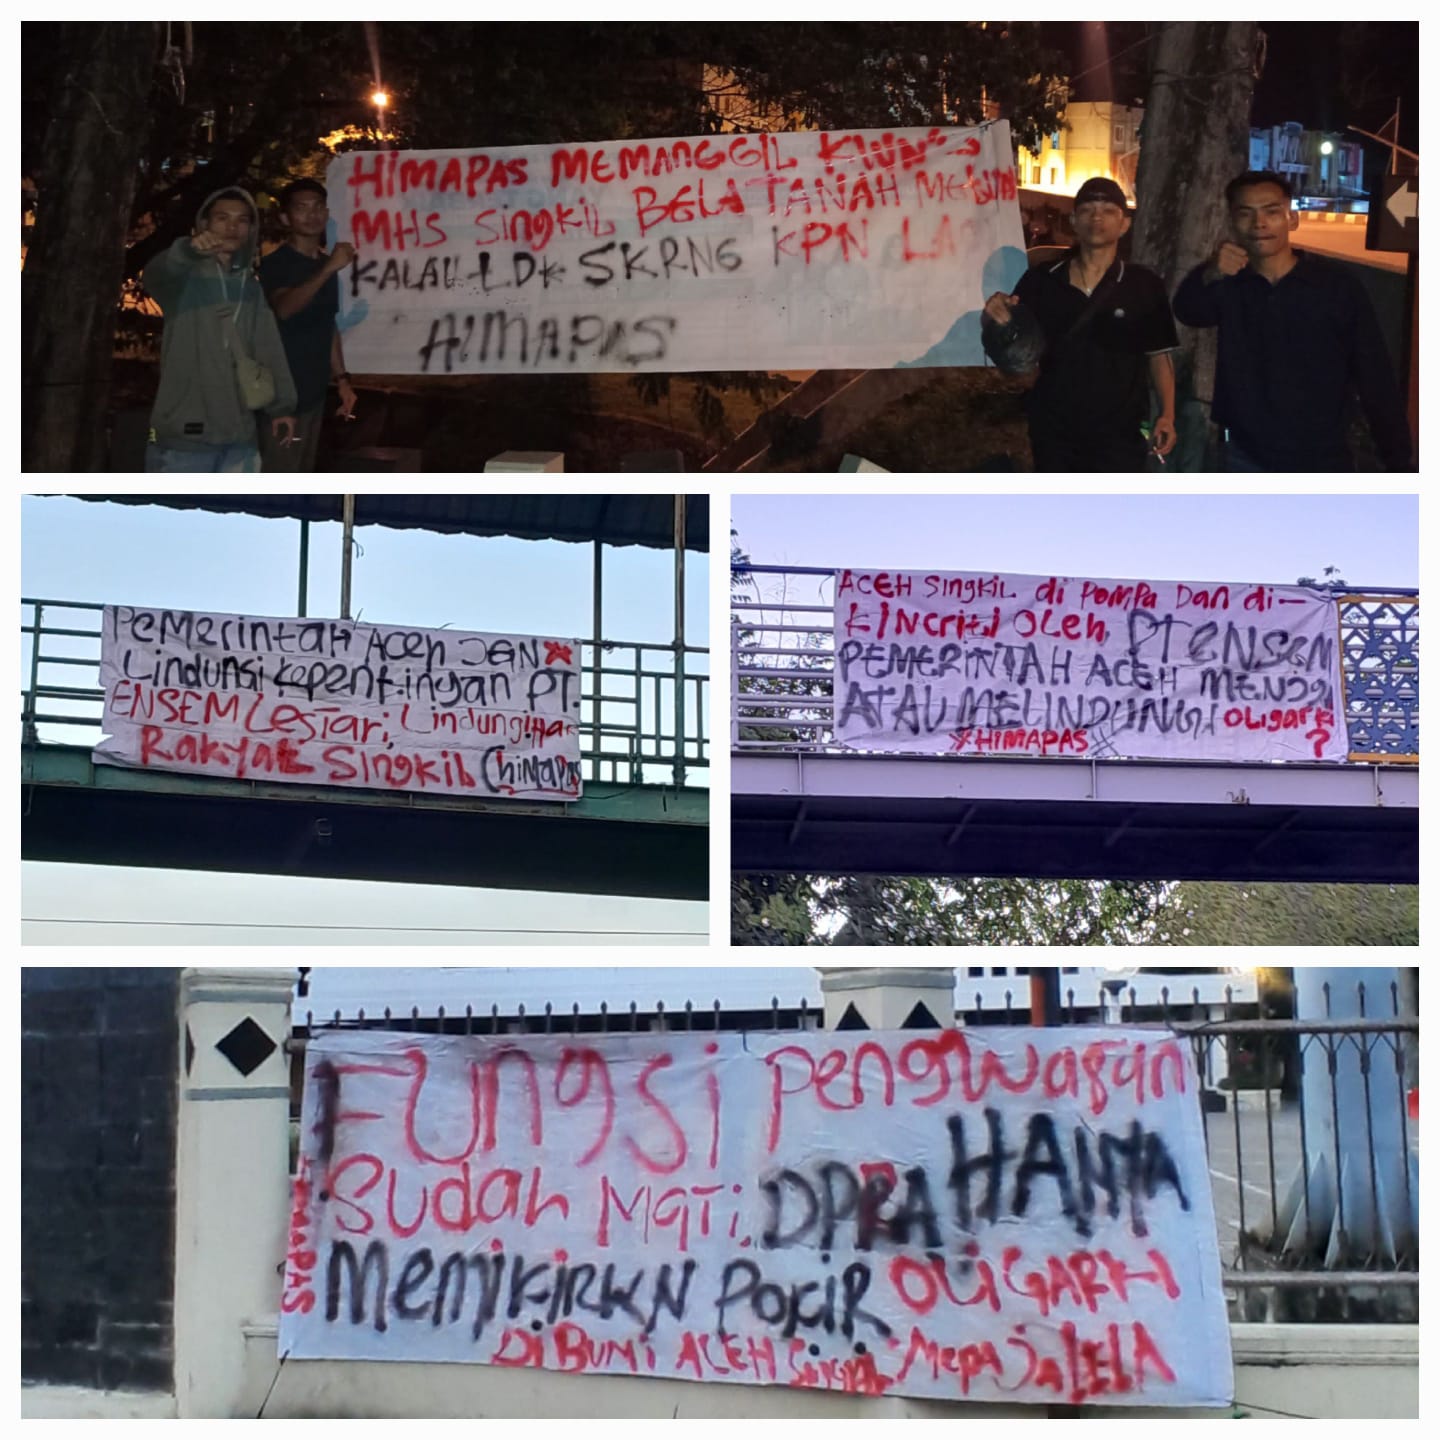 HiMAPAS MEMANGGIL KWN"
MHS SingKiL BELA TANAH
KALAU LDK SKRNG KPN LAGI
HIMAPAS
PeMerintAH Aceh JGN
Lindungi Kepentingan PT.
ENSEM LesTari, Lindungi Hak
RakyaT SingKiL (HiMAPAS
ACEH SingKiL di PomPa Dan di-
KINCriti OLeh PT ENSEM
PEMERINTAH ACEH
ATAU MELINDUNGI OLigarki
?
#HIMAPAS#
FUngsi Pengwasan
Sudah MaTi, DPRA HANYA
MemiKiRKN POKiR OLIGARKI
Di BUMi ACEH Singkil MeRAJALELA
HIMAPAS